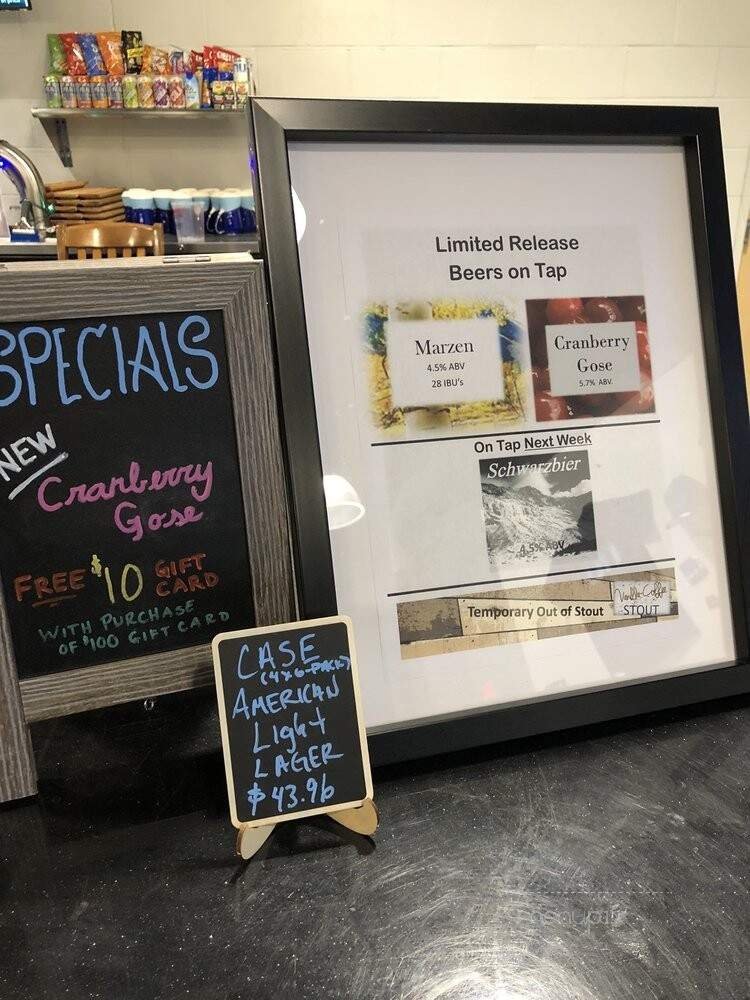 SPECIALS
NEW
Cranberry
Gose
FREE $10 GIFT
CARD
WITH PURCHASE
OF $100 GIFT CARD
CASE
(4x6-PACK)
AMERICAN
Light
LAGER
$43.96
Limited Release
Beers on Tap
Marzen
4.5% ABV
28 IBU's
Cranberry
Gose
5.7% ABV.
On Tap Next Week
Schwarzbier
4.5% ABV
Temporary Out of Stout
Vanilla-Coffee
STOUT